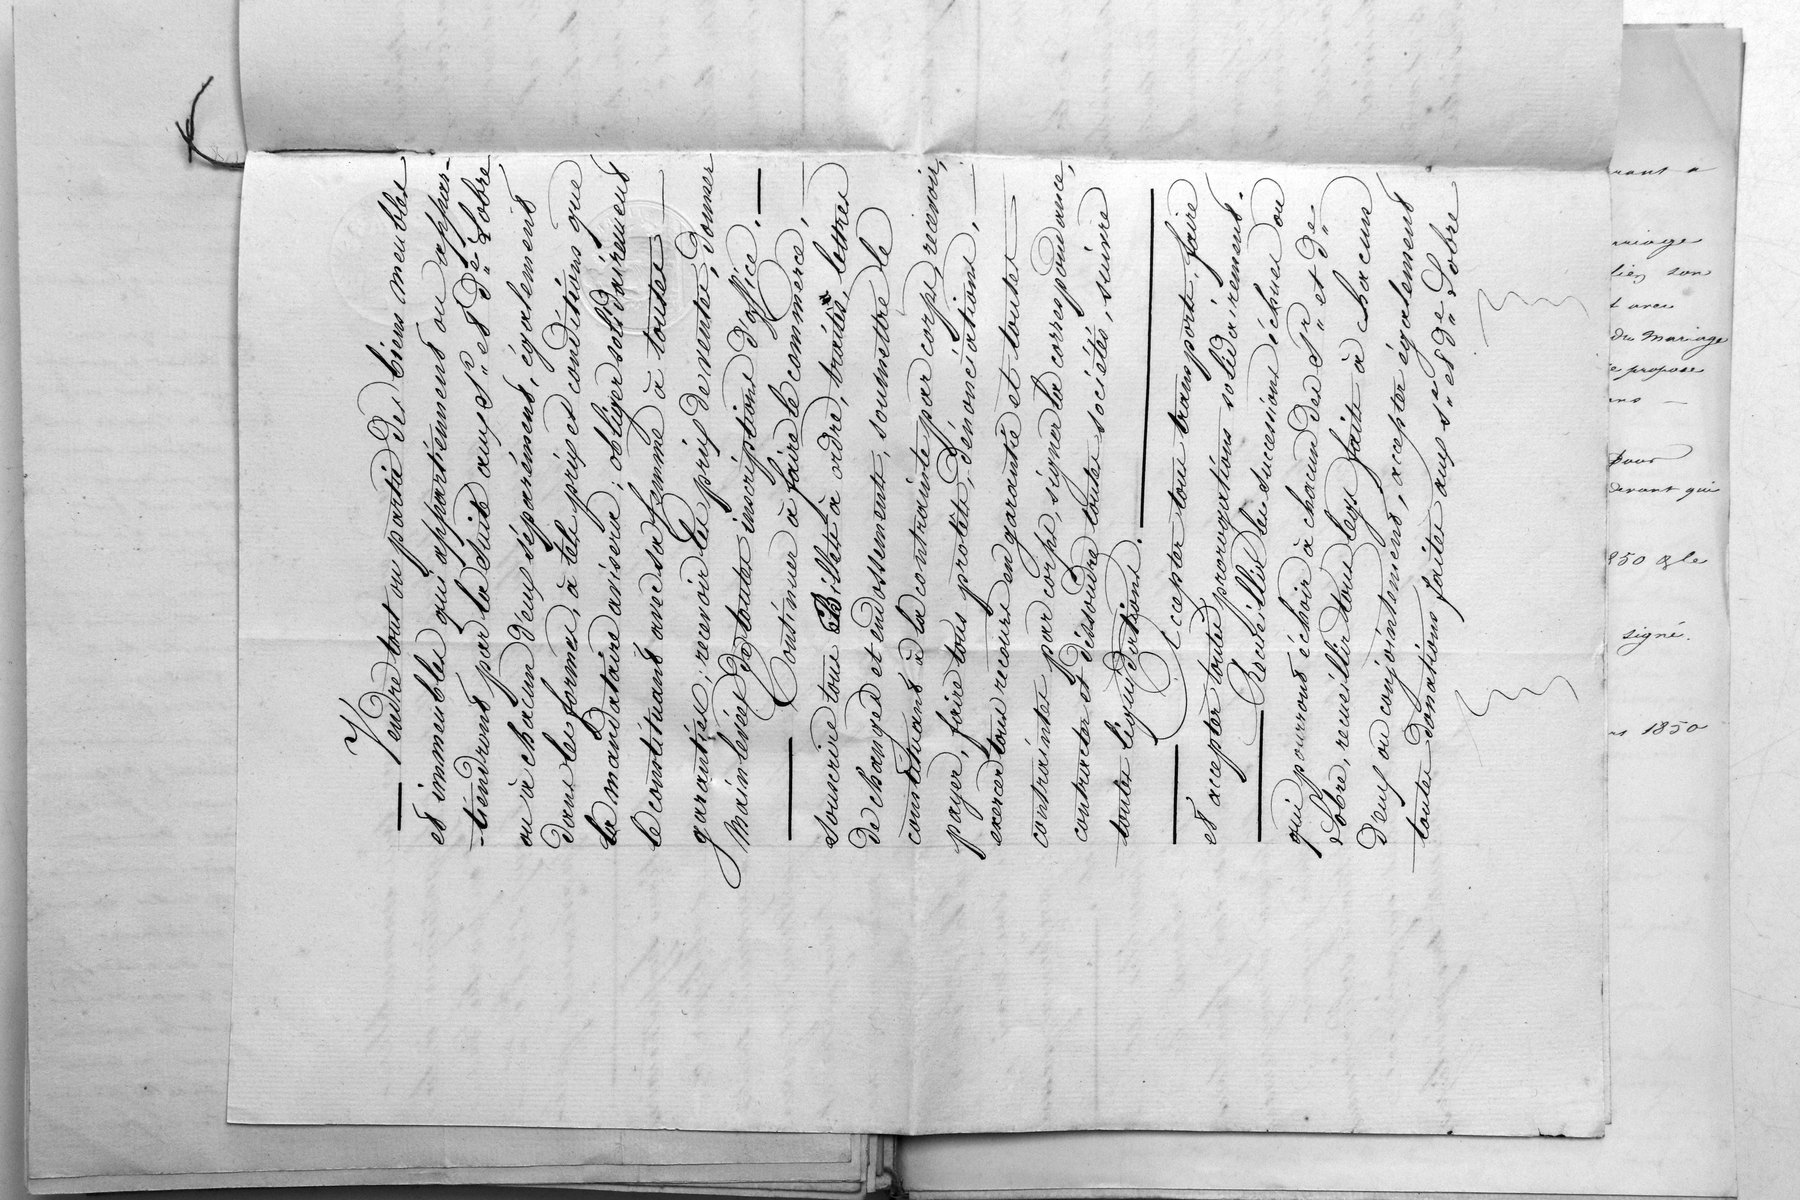 Vendre tout ou partie des biens meubles
et immeubles qui appartiennent ou appar-
tiendront par la suite aux Sr. et De. Lobre
ou à chacun deux séparément, également
dans les formes, à tels prix et conditions que
le mandataire avisera; obliger solidairement
le constituant avec sa femme à toutes
garanties; recevoir les prix de ventes, donner
mainlevée de toutes inscriptions d'office.
Continuer à faire le commerce,
souscrire tous Billets à ordre, traites, lettres
de changes et endossements, soumettre le
constituant à la contrainte par corps, recevoir,
payer, faire tous protêts, dénonciations,
exercer tous recours en garantie et toutes
contraintes par corps, signer la correspondance,
contracter et dissoudre toutes sociétés, suivre
toutes liquidations.
Accepter tous transports, faire
et accepter toutes prorogations solidairement.
Recueillir les successions échues ou
qui pourront échoir à chacun des Sr. et De.
Lobre, recueillir tous legs faits à chacun
deux ou conjointement, accepter également
toutes donations faites aux Sr. et De. Lobre
rant a
mariage
son
t avec
du Mariage
e propose
pour
devant qui
850 & le
signé.
1850